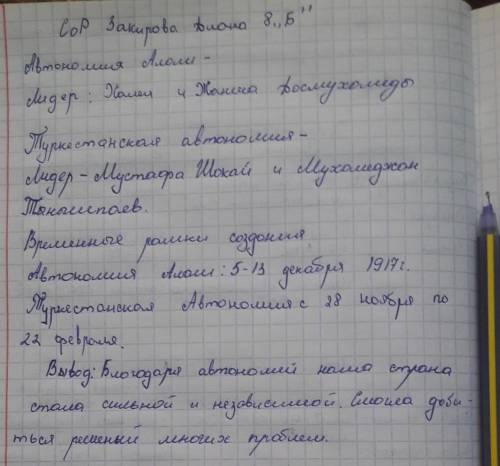 СоР Закирова Диана 8 „Б"
Автономия Алаш -
Лидер: Халел и Жанша Досмухамеды
Туркестанская автономия -
Лидер - Мустафа Шокай и Мухамеджан
Тынышпаев.
Временные рамки создания
Автономия Алаш: 5-13 декабря 1917г.
Туркестанская Автономия с 28 ноября по
22 февраля.
Вывод: Благодаря автономий наша страна
стала сильной и независимой. Смогла доби-
ться решеный многих проблем.